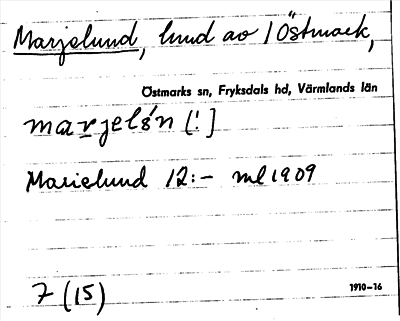 Marjelund, lmd av 1 Östmark,
Östmarks sn, Fryksdals hd, Värmlands län
marjelśn [!]
Marielund 12:- ml 1909
7 (15)
1910-16